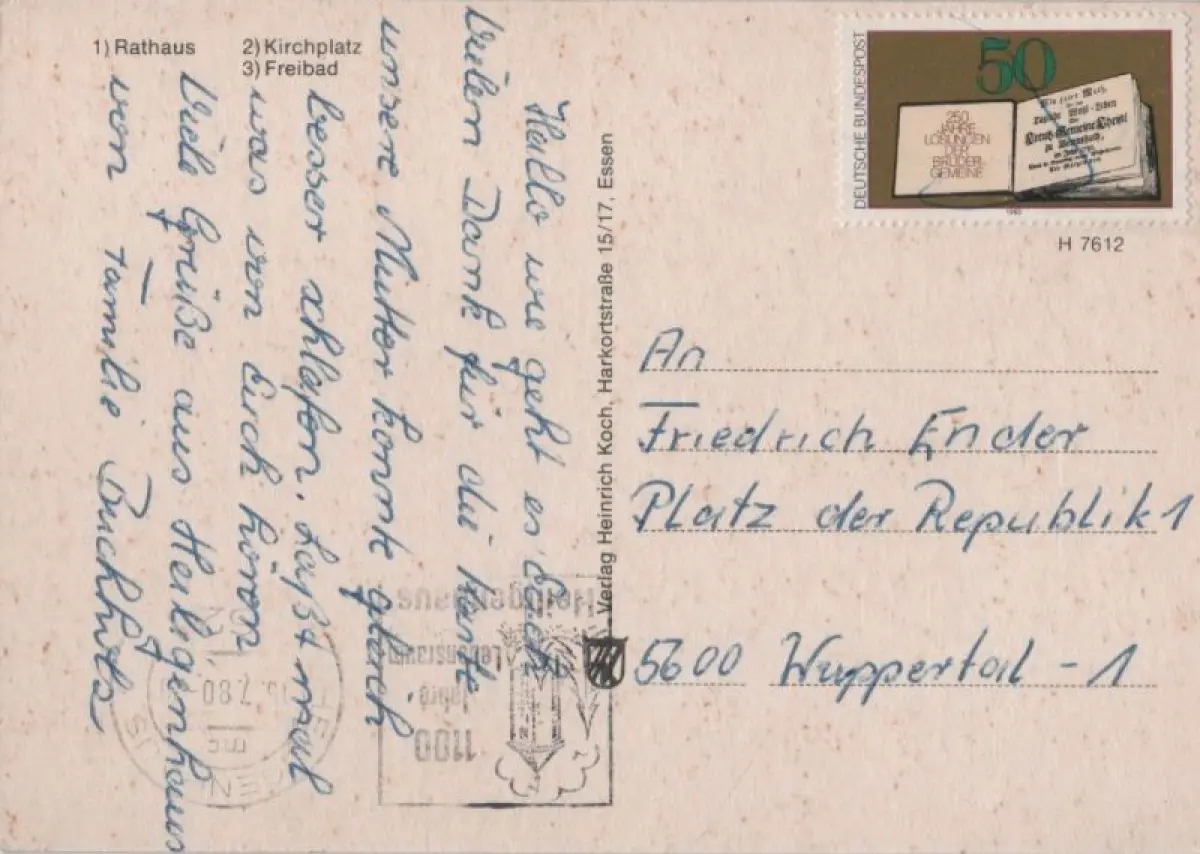 1) Rathaus 2) Kirchplatz
3) Freibad
Hallo wie geht es Euch
Vielen Dank für die Karte
unsere Mutter konnte gleich
besser schlafen. Laßt mal
was von Euch hören
Viele Grüße aus Heiligenhaus
von Familie
Verlag Heinrich Koch, Harkortstraße 15/17, Essen
DEUTSCHE BUNDESPOST
50
250
JAHRE
LOSUNGEN
DER
BRÜDER-
GEMEINE
1980
H 7612
An
Friedrich Ender
Platz der Republik 1
5600 Wuppertal - 1
1100
Jahre
Lebensraum
Heiligenhaus
7.80